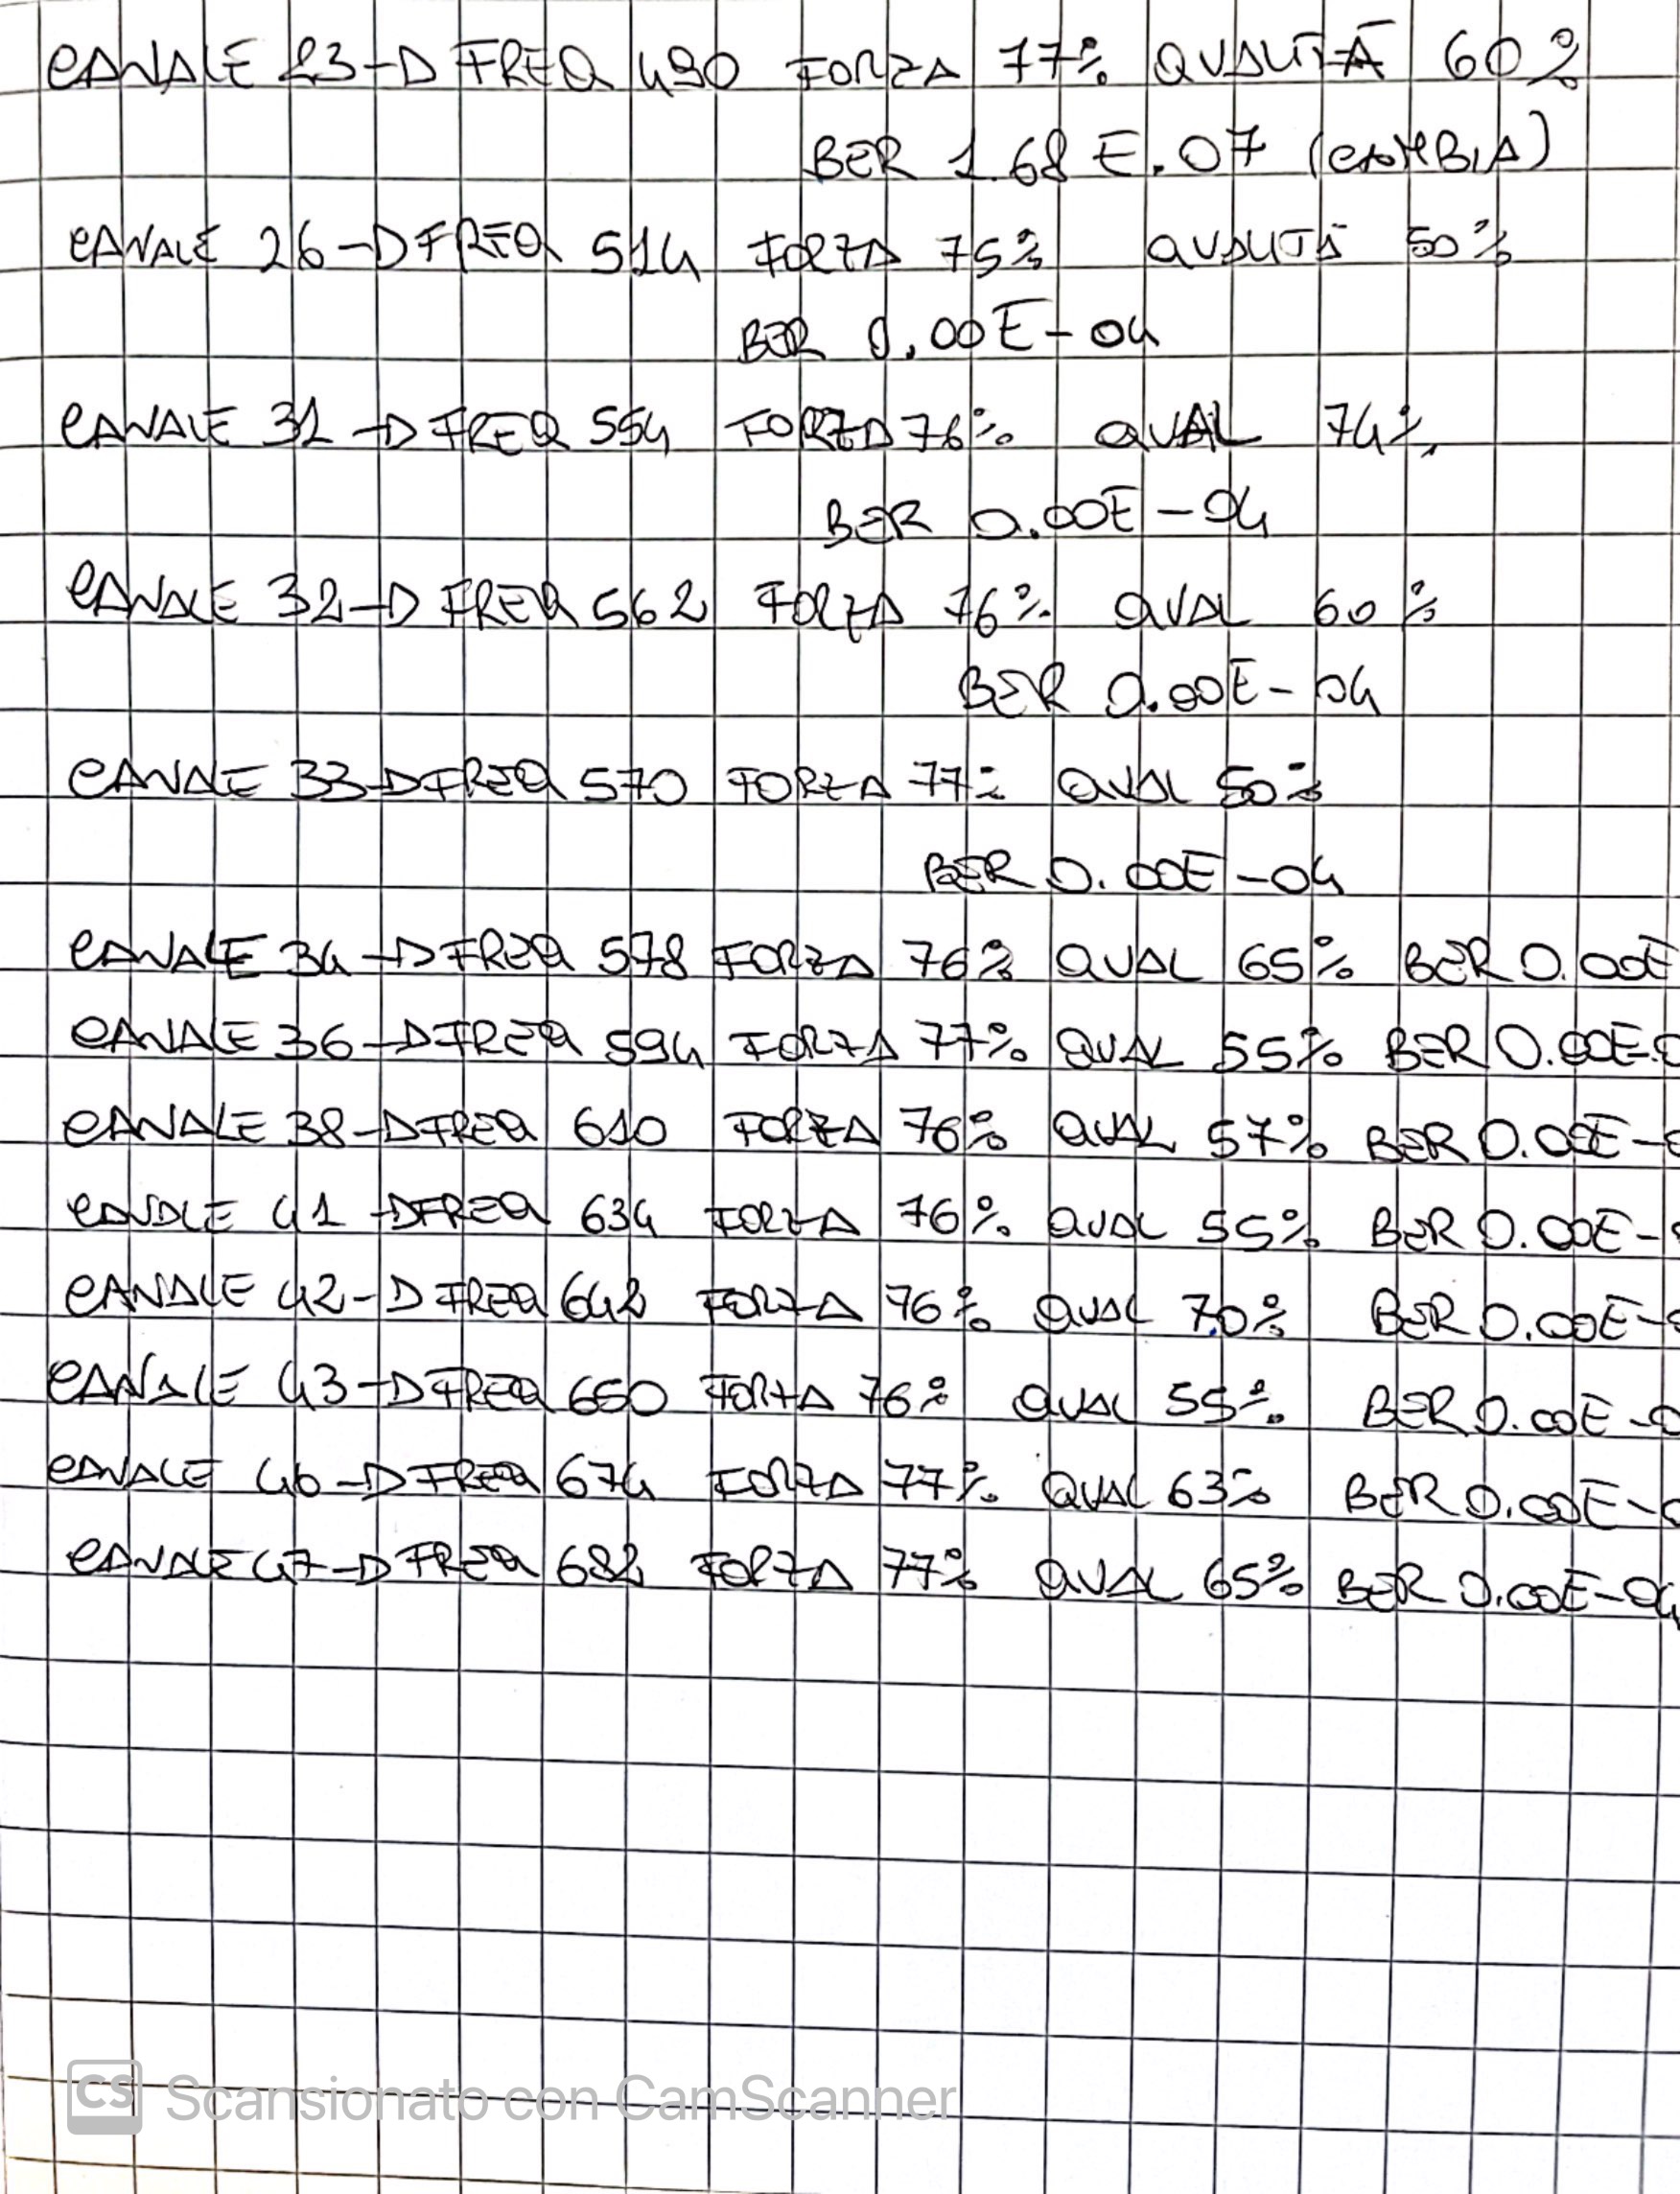 CANALE 23 → FREQ 490 FORZA 77% QUALITÀ 60%
BER 1.68 E.07 (CAMBIA)
CANALE 26 → FREQ 514 FORZA 75% QUALITÀ 50%
BER 0.00E-04
CANALE 31 → FREQ 554 FORZA 76% QUAL 74%
BER 0.00E-04
CANALE 32 → FREQ 562 FORZA 76% QUAL 60%
BER 0.00E-04
CANALE 33 → FREQ 570 FORZA 77% QUAL 50%
BER 0.00E-04
CANALE 34 → FREQ 578 FORZA 76% QUAL 65% BER 0.00E
CANALE 36 → FREQ 594 FORZA 77% QUAL 55% BER 0.00E-0
CANALE 38 → FREQ 610 FORZA 76% QUAL 57% BER 0.00E-0
CANALE 41 → FREQ 634 FORZA 76% QUAL 55% BER 0.00E-
CANALE 42 → FREQ 642 FORZA 76% QUAL 70% BER 0.00E-
CANALE 43 → FREQ 650 FORZA 76% QUAL 55% BER 0.00E-0
CANALE 46 → FREQ 674 FORZA 77% QUAL 63% BER 0.00E-0
CANALE 47 → FREQ 682 FORZA 77% QUAL 65% BER 0.00E-04
CS Scansionato con CamScanner